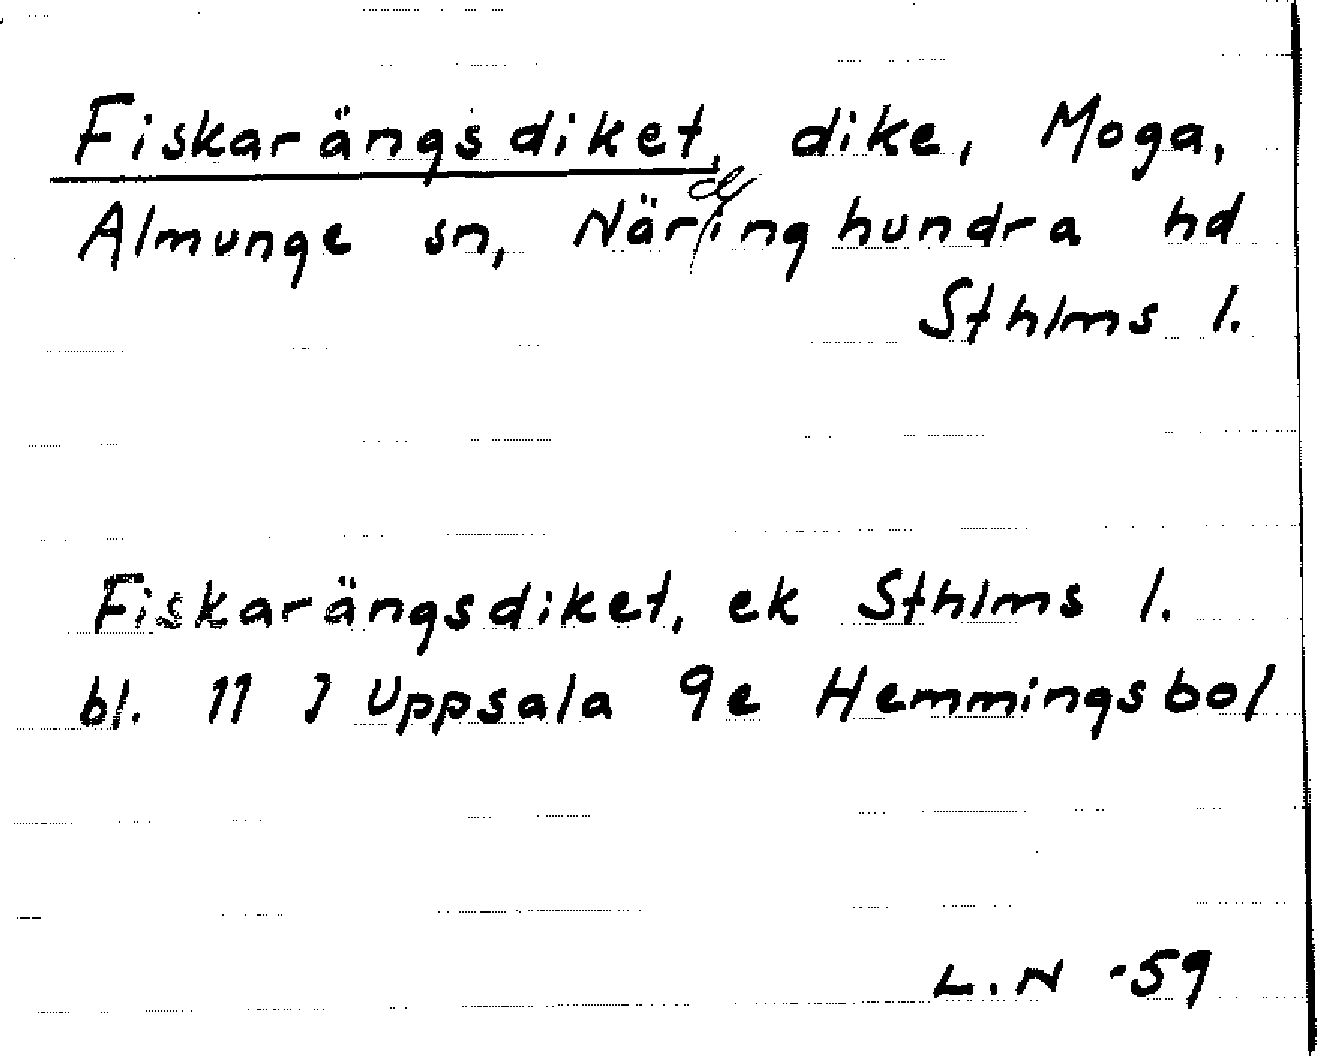 Fiskarängsdiket, dike, Moga,
Almunge sn, Närdinghundra hd
Sthlms l.
Fiskarängsdiket, ek Sthlms l.
bl. 11 J Uppsala 9e Hemmingsbol
L.N -59